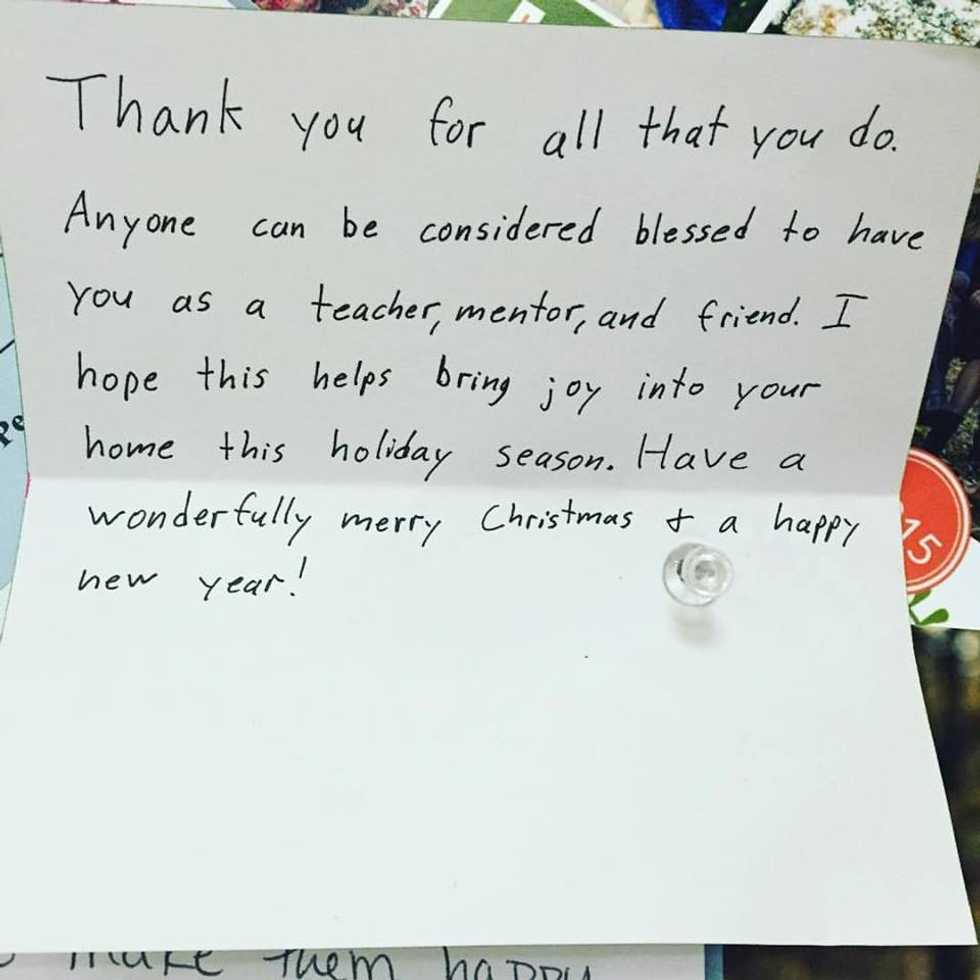 Thank you for all that you do.
Anyone can be considered blessed to have
you as a teacher, mentor, and friend. I
hope this helps bring joy into your
home this holiday season. Have a
wonderfully merry Christmas + a happy
new year!
15
make them happy